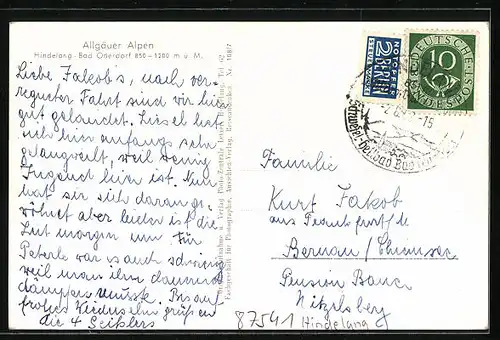 Allgäuer Alpen
Hindelang - Bad Oberdorf 850-1200 m ü. M.
Liebe Jakobs, nach ver-
regneter Fahrt sind wir hier
gut gelandet. Liesel hat
sich hier anfangs sehr
gelangweilt, weil wenig
Jugend hier ist. Nun
hat sie sich daran ge-
wöhnt aber leider ist die
Zeit morgen um. Für
Peterle war es auch schwierig
weil man ihn dauernd
dämpfen musste. Bis auf
frohes Wiedersehn grüßen
die 4 Seiklers
NOTOPFER
2 BERLIN
STEUERMARKE
DEUTSCHE
10
BUNDESPOST
-15
Schwefel-Heilbad Bad
Familie
Kurt Jakob
aus Frankfurt/M
Bernau/Chiemsee
Pension
Hitzelsberg
87541 Hindelang